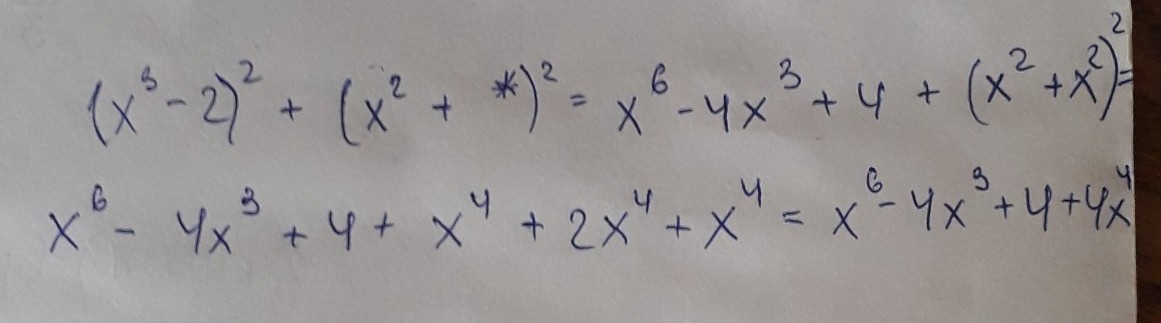 (x³ - 2)² + (x² + *)² = x⁶ - 4x³ + 4 + (x² + x²)² =
x⁶ - 4x³ + 4 + x⁴ + 2x⁴ + x⁴ = x⁶ - 4x³ + 4 + 4x⁴